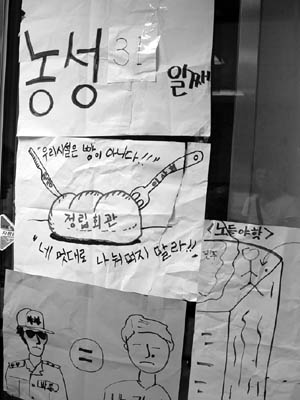 농성 31 일째
"우리시설은 빵이 아니다!!!"
정립회관
"네 멋대로 나눠먹지 말라!!
<노들야핫>
=